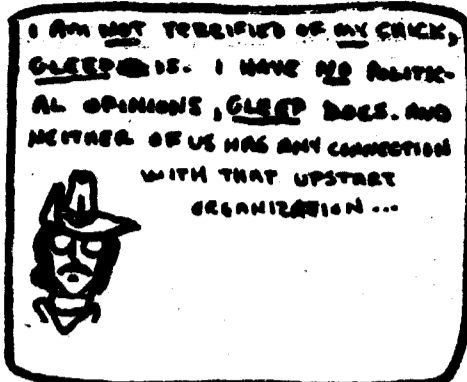 I AM NOT TERRIFIED OF MY CHICK,
GLEEP IS. I HAVE NO POLITIC-
AL OPINIONS, GLEEP DOES. AND
NEITHER OF US HAS ANY CONNECTION
WITH THAT UPSTART
ORGANIZATION...